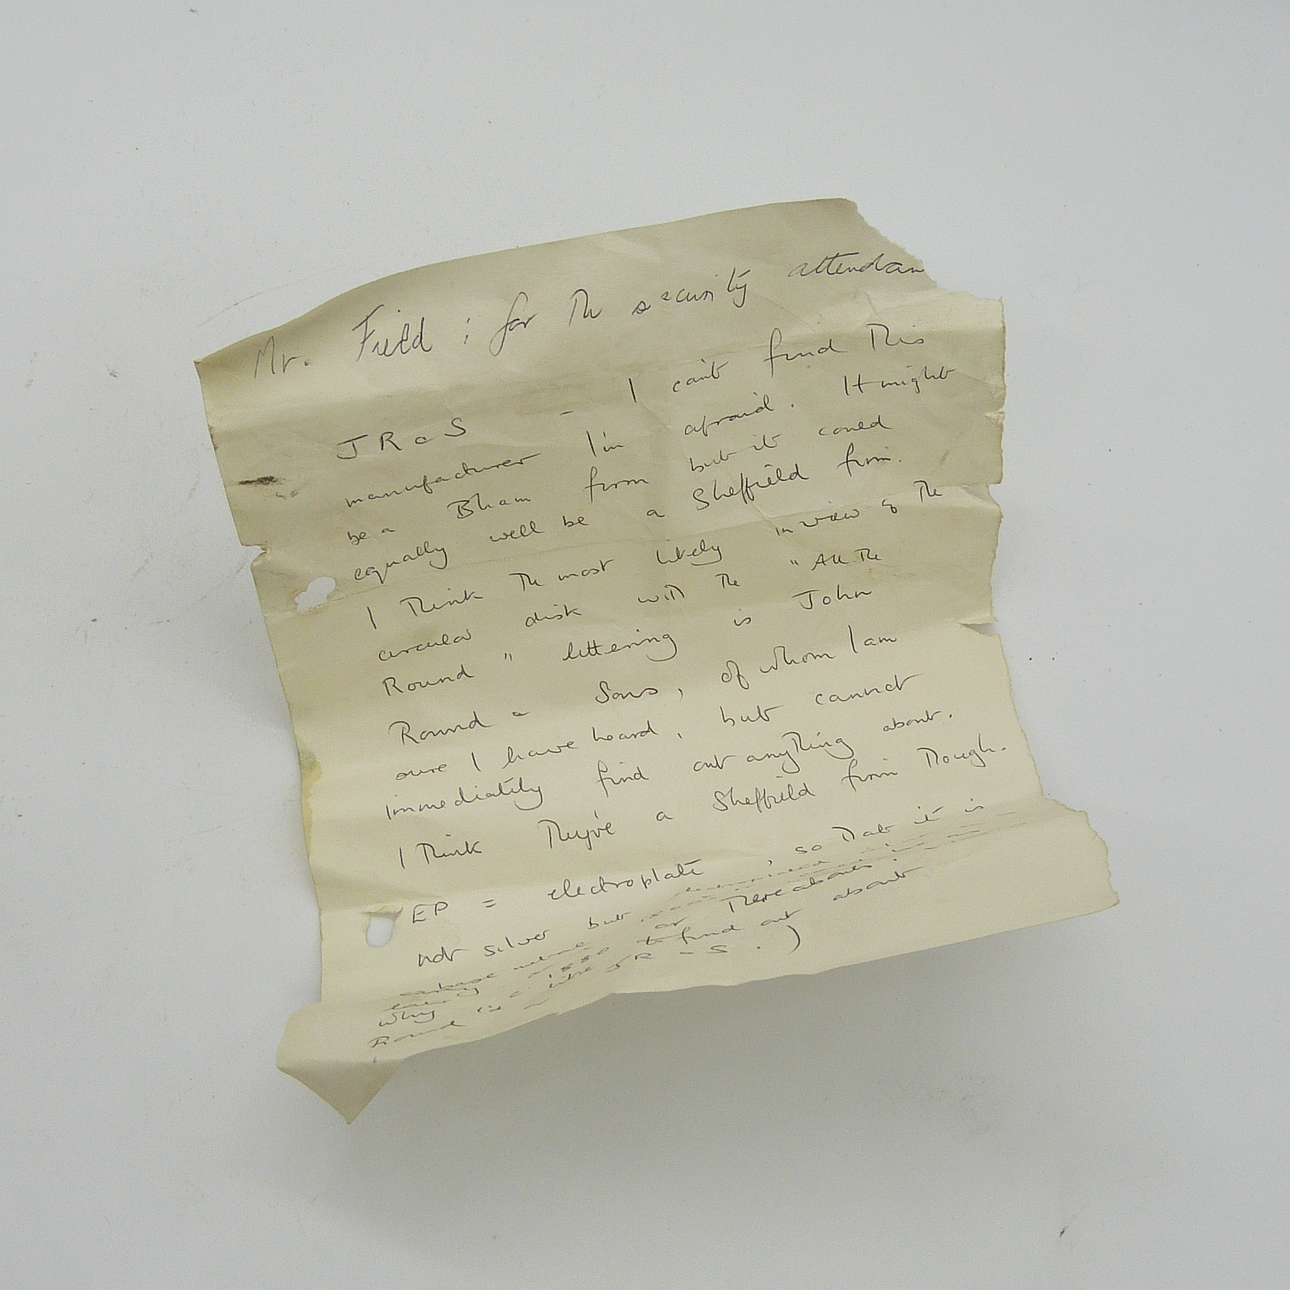 Mr. Field ; for the security attendan
JR & S - I can't find this
manufacturer I'm afraid. It might
be a Bham firm but it could
equally well be a Sheffield firm.
I think the most likely in view of the
circular disk with the " All the
Round " lettering is John
Round & Sons, of whom I am
sure I have heard, but cannot
immediately find out anything about.
I think they're a Sheffield firm though.
EP = electroplate, so that it is
not silver but
or thereabouts.
Why to find out about
Round is a JR & S.)